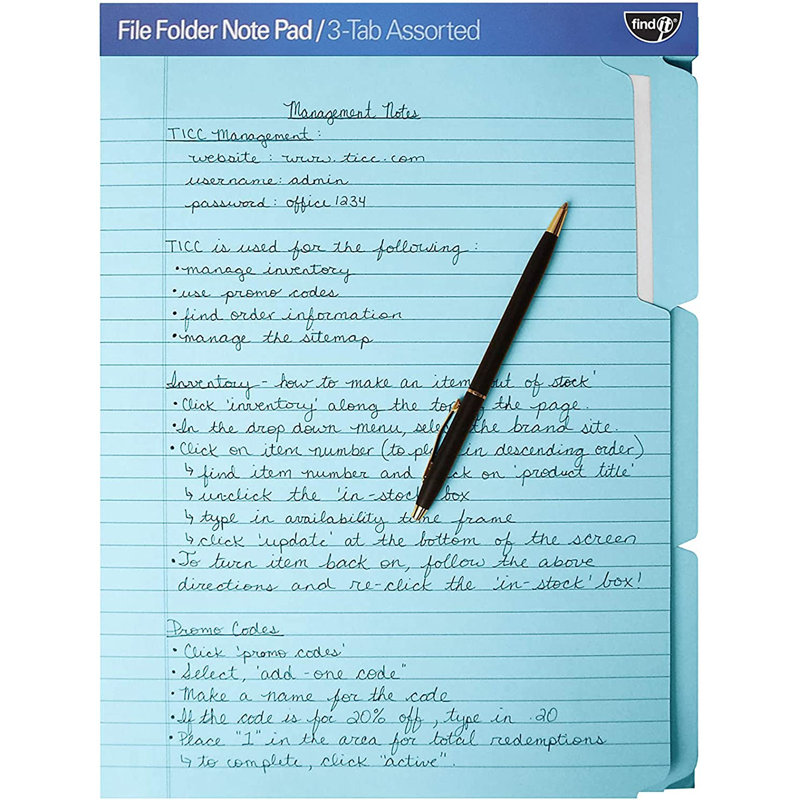 File Folder Note Pad / 3-Tab Assorted
find it®
Management Notes
TICC Management :
website : www.ticc.com
username : admin
password : office 1234
TICC is used for the following :
• manage inventory
• use promo codes
• find order information
• manage the sitemap
Inventory - how to make an item out of stock'
• Click 'inventory' along the top the page.
• In the drop down menu, select the brand site.
• Click on item number (to in descending order)
↳ find item number and on 'product title'
↳ unclick the 'in-stock box
↳ type in availability time frame
↳ click 'update' at the bottom of the screen
• To turn item back on, follow the above
directions and re-click the 'in-stock' box!
Promo Codes
• Click 'promo codes'
• Select, 'add -one code"
• Make a name for the code
• If the code is for 20% off, type in .20
• Place "1" in the area for total redemptions
↳ to complete, click "active".